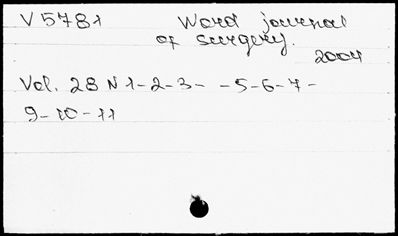 V 5781 Word journal
of surgery.
2004
Vol. 28 N 1-2-3- -5-6-7-
9-10-11